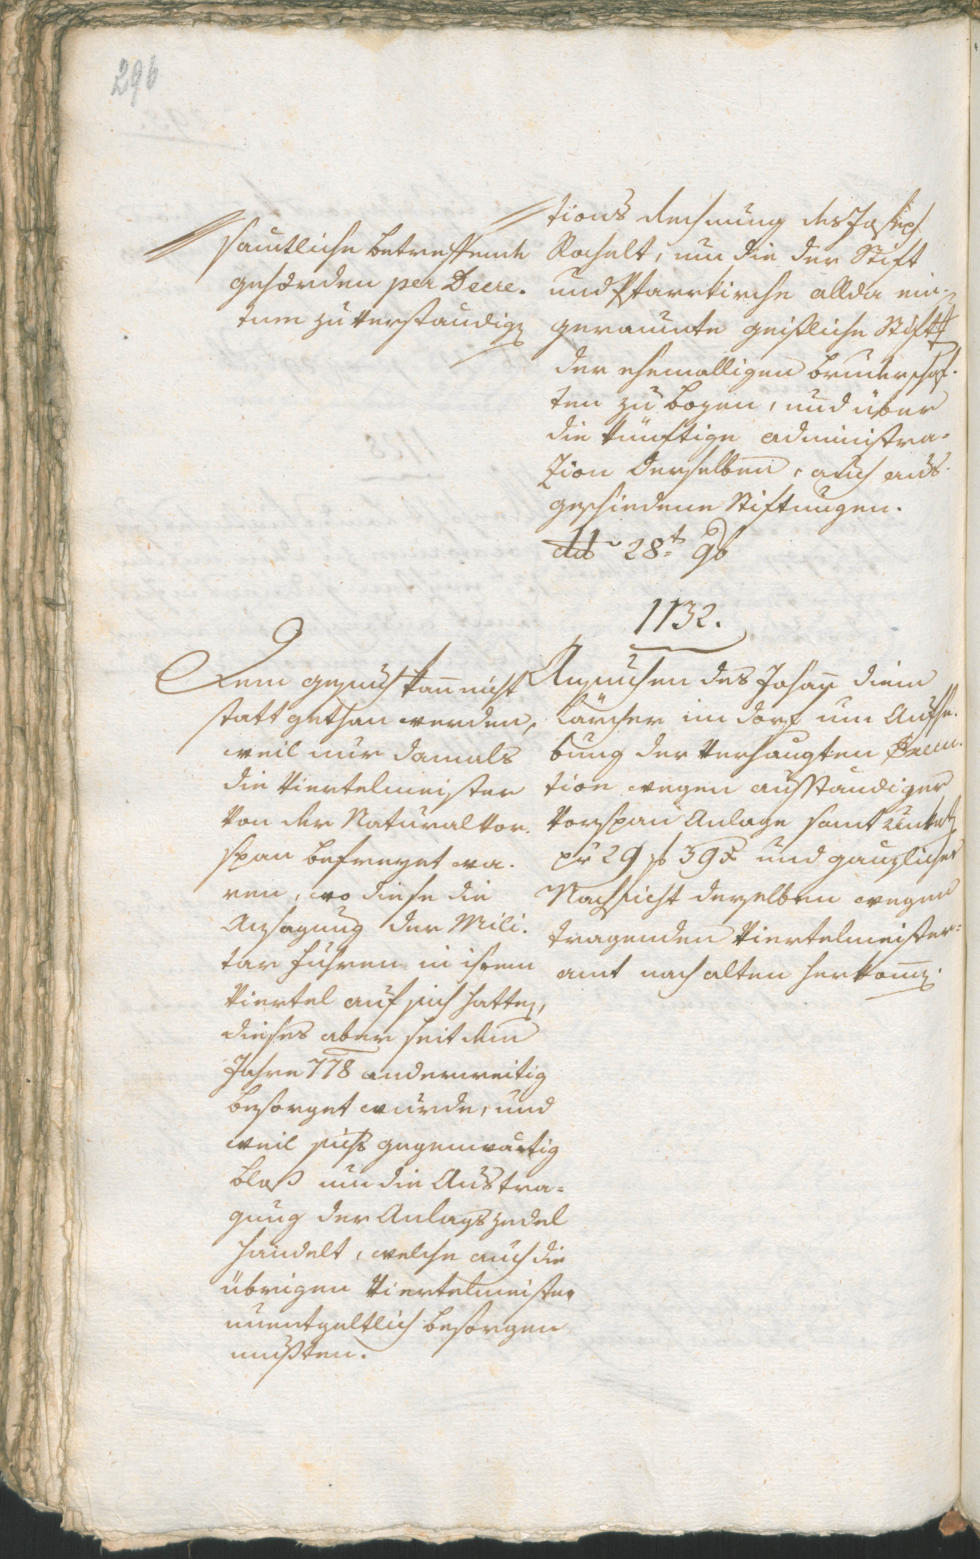 296
sämtliche betreffende
gehörden per Decre-
tum zu verständigen
tions Rechnung des Joseph
Rochelt, um die der Stift
und Pfarrkirche allda ein-
geraumte geistliche Stift
der ehemalligen bruderschaf-
ten zu bozen, und über
die künftige administra-
zion derselben, auch aus-
geschiedene Stiftungen.
ddo 28t 9b
1132.
Dem gesuch kann nicht
statt gethan werden,
weil nur damals
die Viertelmeister
von der Natural vor-
span befreyet wa-
ren, wo diese die
Ansagung der Mili-
tar fuhren in ihrem
Viertel auf sich hatten,
dieses aber seit dem
Jahre 778 anderweitig
besorget wurde, und
weil sichs gegenwärtig
blos um die Austra-
gung der Anlagszedel
handelt, welche auch die
übrigen Viertelmeister
unentgeltlich besorgen
mußten.
Ansuchen des Johann
Lärcher im dorf um Aufhe-
bung der verhängten Execu-
tion wegen ausständiger
Vorspan Anlage samt
pr 29 f 39 x und gänzlicher
Nachsicht derselben wegen
tragenden Viertelmeister-
amt nach alten herkomen.